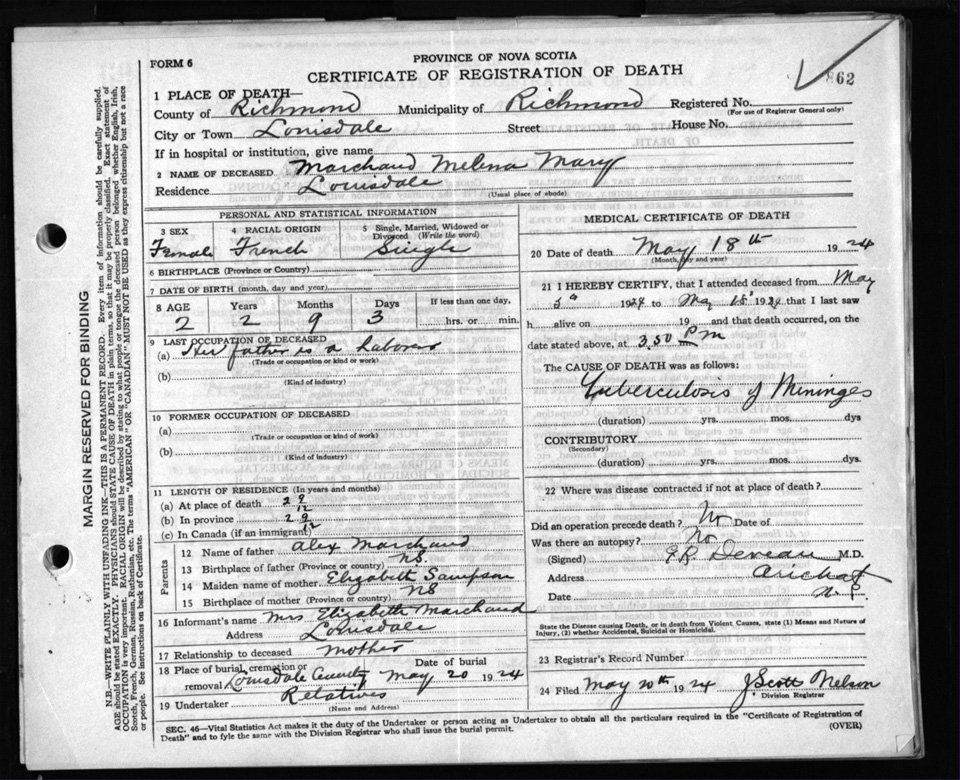 FORM 6
PROVINCE OF NOVA SCOTIA
CERTIFICATE OF REGISTRATION OF DEATH
862
1 PLACE OF DEATH—
County of Richmond Municipality of Richmond Registered No.
(For use of Registrar General only)
City or Town Louisdale Street House No.
If in hospital or institution, give name
2 NAME OF DECEASED Marchand Melena Mary
Residence Louisdale
(Usual place of abode)
PERSONAL AND STATISTICAL INFORMATION
3 SEX 4 RACIAL ORIGIN 5 Single, Married, Widowed or Divorced (Write the word)
Female French Single
6 BIRTHPLACE (Province or Country)
7 DATE OF BIRTH (month, day and year)
8 AGE Years Months Days If less than one day,
2 2 9 3 hrs. or min.
9 LAST OCCUPATION OF DECEASED
(a) Her father is a Laborer
(Trade or occupation or kind of work)
(b)
(Kind of industry)
10 FORMER OCCUPATION OF DECEASED
(a)
(Trade or occupation or kind of work)
(b)
(Kind of industry)
11 LENGTH OF RESIDENCE (In years and months)
(a) At place of death 2 9/12
(b) In province 2 9/12
(c) In Canada (if an immigrant)
Parents
12 Name of father Alex Marchand
13 Birthplace of father (Province or country) NS.
14 Maiden name of mother Elizabeth Sampson
15 Birthplace of mother (Province or country) NS
16 Informant's name Mrs Elizabeth Marchand
Address Louisdale
17 Relationship to deceased Mother
18 Place of burial, cremation or removal Louisdale Date of burial May 20 1924
19 Undertaker Relatives
(Name and Address)
MEDICAL CERTIFICATE OF DEATH
20 Date of death May 18th 1924
(Month, day and year)
21 I HEREBY CERTIFY, that I attended deceased from May
5th 1924 to May 15 1924 that I last saw
h alive on 19 and that death occurred, on the
date stated above, at 3.50 Pm
The CAUSE OF DEATH was as follows:
Tuberculosis of Mininges
(duration) yrs. mos. dys
CONTRIBUTORY
(Secondary)
(duration) yrs. mos. dys.
22 Where was disease contracted if not at place of death?
Did an operation precede death? No Date of
Was there an autopsy? No
(Signed) Deveau M.D.
Address Arichat
Date N.S
State the Disease causing Death, or in death from Violent Causes, state (1) Means and Nature of
Injury, (2) whether Accidental, Suicidal or Homicidal.
23 Registrar's Record Number
24 Filed May 20th 1924 J Scott Nelson
Division Registrar
SEC. 46—Vital Statistics Act makes it the duty of the Undertaker or person acting as Undertaker to obtain all the particulars required in the "Certificate of Registration of
Death" and to fyle the same with the Division Registrar who shall issue the burial permit. (OVER)
MARGIN RESERVED FOR BINDING
N.B.—WRITE PLAINLY WITH UNFADING INK—THIS IS A PERMANENT RECORD. Every item of information should be carefully supplied.
AGE should be stated EXACTLY. PHYSICIANS should STATE CAUSE OF DEATH in plain terms, so that it may be properly classified. Exact statement of
OCCUPATION is very important. RACIAL ORIGIN will be described by stating to what people or tongue the deceased person belonged whether English, Irish,
Scotch, French, German, Russian, Ruthenian, etc. The terms "AMERICAN" OR "CANADIAN" MUST NOT BE USED as they express citizenship but not a race
or people. See instructions on back of Certificate.